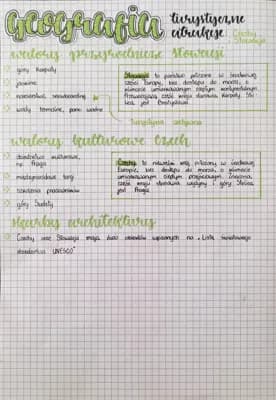 Geografia turystyczne atrakcje Czechy Słowacja
walory przyrodnicze Słowacji
góry Karpaty
jaskinie
narciarstwo, snowboarding
wody termalne, parki wodne
Słowacja to państwo położone w środkowej
części Europy, bez dostępu do morza, o
klimacie umiarkowanym ciepłym kontynentalnym.
Przeważającą część kraju stanowią Karpaty. Sto
licą jest Bratysława.
Turystyka aktywna
walory kulturowe Czech
dziedzictwo kulturowe,
np. Praga
międzynarodowe targi
szkolenia pracowników
góry Sudety
Czechy to niewielki kraj położony w środkowej
Europie, bez dostępu do morza, o klimacie
umiarkowanym ciepłym przejściowym. Znaczną
część kraju stanowią wyżyny i góry. Stolicą
jest Praga.
skarby architektury
Czechy oraz Słowacja mają dużo obiektów wpisanych na „Listę światowego
dziedzictwa UNESCO"